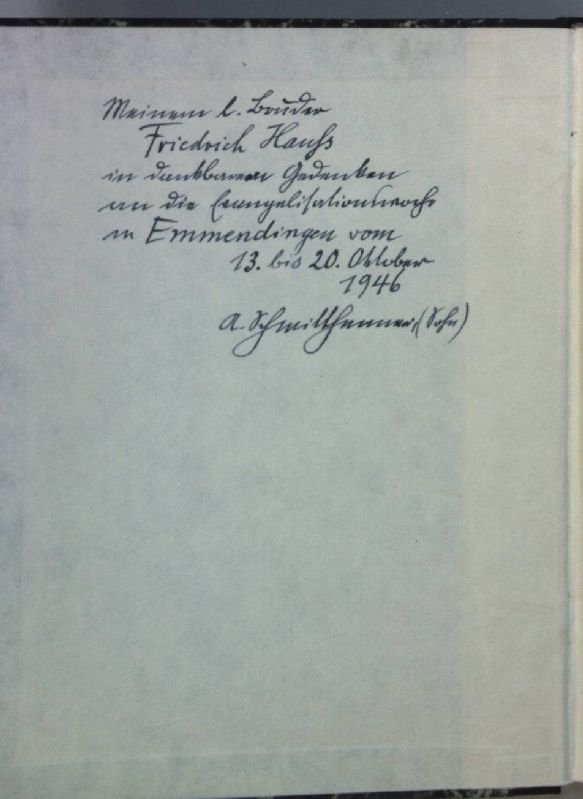 Meinem l. Bruder
Friedrich Hauß
in dankbarem Gedenken
an die Evangelisationswoche
in Emmendingen vom
13. bis 20. Oktober
1946
A. Schmitthenner, (Sohn)